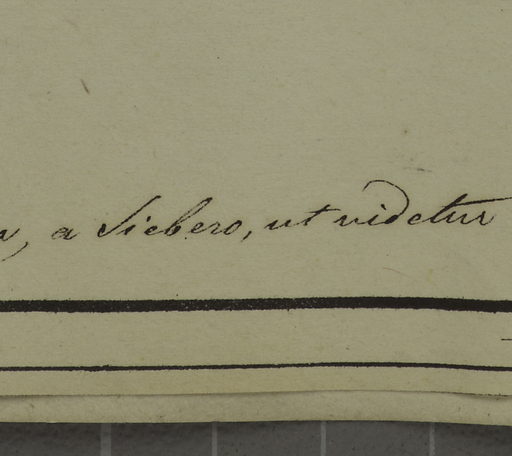 , a Siebero, ut videtur